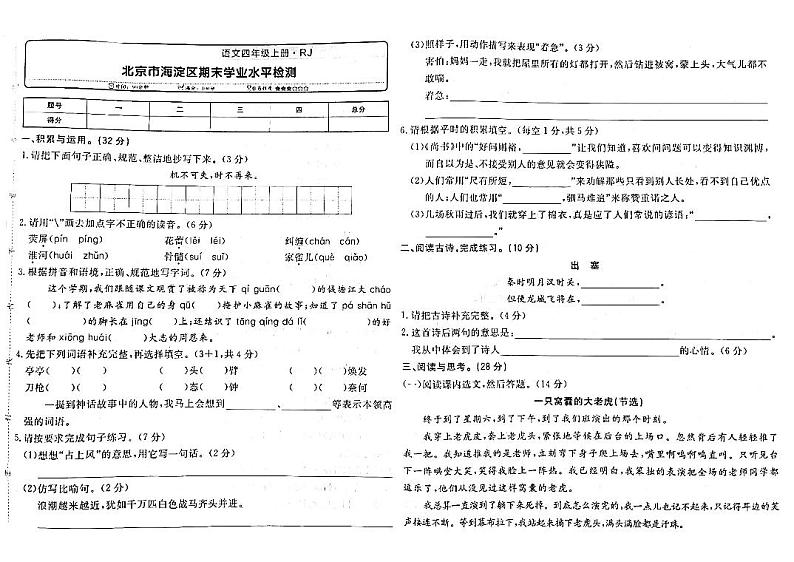 语文四年级上册·RJ
北京市海淀区期末学业水平检测
题号 一 二 三 四 总分
得分
一、积累与运用。(32分)
1.请把下面句子正确、规范、整洁地抄写下来。(3分)
机不可失,时不再来。
2.请用“\”画去加点字不正确的读音。(6分)
荧屏(pín píng) 花蕾(lěi léi) 纠缠(chán cán)
淮河(huái zhǔn) 骨髓(suǐ suí) 家雀儿(què qiǎo)
3.根据拼音和语境,正确、规范地写字词。(7分)
这个学期,我们跟随课文观赏了被称为天下 qí guān( )的钱塘江大潮
( );了解了老麻雀用自己的身 qū( )掩护小麻雀的故事;知道了 pá shān hǔ
( )的脚长在 jīng( )上;还结识了 tāng qíng dá lǐ( )的好
老师和 xiōng huái( )大志的周恩来。
4.先把下列词语补充完整,再选择填空。(3+1,共4分)
亭亭( )( ) ( )头( )臂 ( )( )焕发
刀枪( )( ) ( )态( )钟 ( )( )奈何
一提到神话故事中的人物,我马上会想到 、 等表示本领高
强的词语。
5.请按要求完成句子练习。(7分)
(1)想想“占上风”的意思,用它写一句话。(2分)
(2)仿写比喻句。(2分)
浪潮越来越近,犹如千万匹白色战马齐头并进。
(3)照样子,用动作描写来表现“着急”。(3分)
害怕:妈妈一走,我就把屋里所有的灯都打开,然后钻进被窝,蒙上头,大气儿都不
敢喘。
着急:
6.请根据平时的积累填空。(每空1分,共5分)
(1)《尚书》中的“好问则裕, ”让我们知道,喜欢问问题可以变得知识渊博,
而自以为是、不接受别人的意见就会变得狭隘。
(2)人们常用“尺有所短, ”来劝解那些只看到别人长处,看不到自己优点
的人;人们也常用“ ,驷马难追”来称赞重诺之人。
(3)几场秋雨过后,我们就穿上了棉衣,真是应了人们常说的谚语:“ ,
。”
二、阅读古诗,完成练习。(10分)
出 塞
秦时明月汉时关, 。
但使龙城飞将在, 。
1.请把古诗补充完整。(4分)
2.这首诗后两句的意思是:
我从中体会到了诗人 的心情。(6分)
三、阅读与思考。(28分)
(一)阅读课内选文,然后答题。(14分)
一只窝囊的大老虎(节选)
终于到了星期六,到了下午,到了我们班演出的那个时刻。
我穿上老虎皮,套上老虎头,紧张地等候在后台的上场口。忽然背后有人轻轻推了
我一把。我知道推我的是老师,立刻弯下身子爬上场去,嘴里啊呜啊呜直叫。只听见台
下一阵哄堂大笑,笑得我脸上一阵热。我已经明白,我笨拙的表演把全场的老师同学都
逗乐了,他们从没见过这样窝囊的老虎。
我总算一直演到了躺下来死掉。到底怎么演完的,我一点儿也记不起来,只记得耳边的笑
声接连不断。等到幕布拉下,我站起来摘下老虎头,满头满脸都是汗珠。